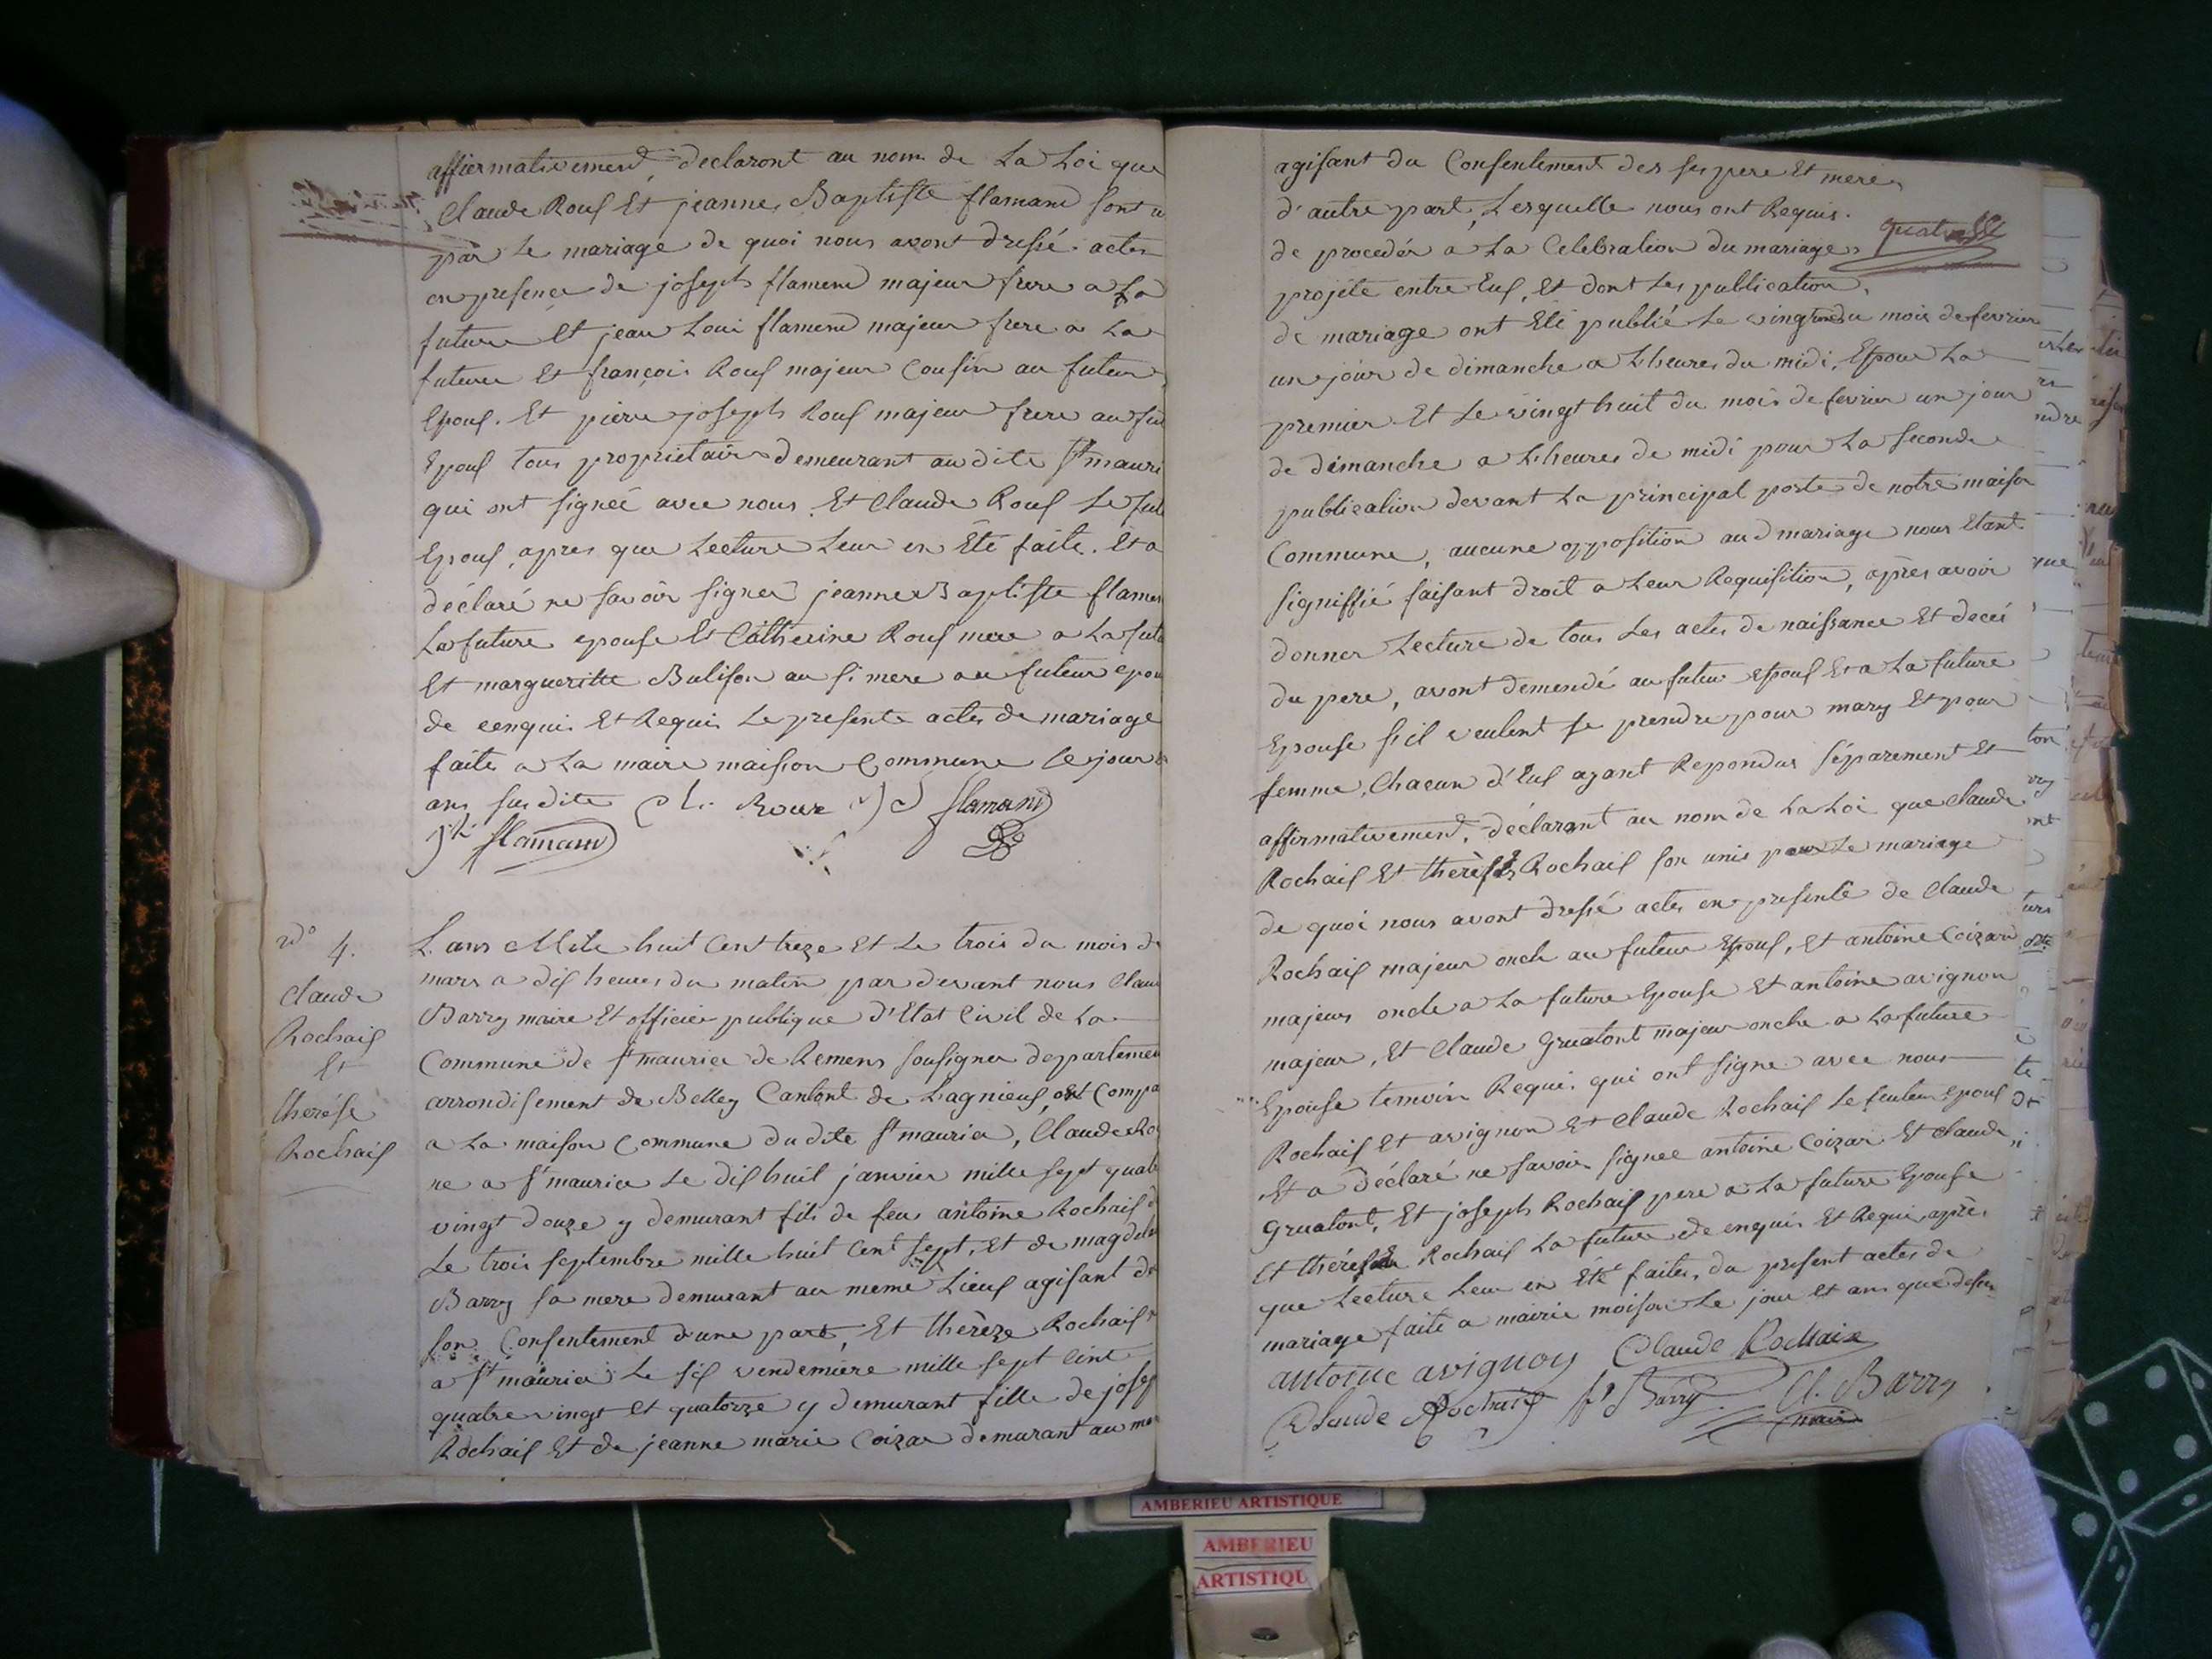 affiermativement, declaront au nom de La Loi que
Claude Rouf Et jeanne Baptiste flamand sont u
par Le mariage de quoi nous avont dressé actes
en presence de joseph flamend majeur frere a La
future Et jean Loui flamend majeur frere a La
future Et françois Rouf majeur Cousin au futur
Epouf. Et pierre joseph Rouf majeur frere au fut
Epouf tous proprietaire demeurant audite St mauri
qui ont signeé avec nous. Et Claude Rouf Le futu
Epouf, apres que Lecture Leur en Eté faite. Et a
déclaré ne savoir signer jeanne Baptiste flamen
La future epouse Et Catherine Rouf mere a La futu
Et margueritte Bulison au si mere au futeur epou
de cenquis Et Requis Le presente actes de mariage
faite a La maire maision Commune Le jour
ans susdite Cl. Roux J L flamand
jh flamand
No 4.
Claude
Rochaif
Et
therése
Rochaif
L'ans Mile huit Cent treze Et Le trois du mois de
mars a dif heures du matin par devant nous Clau
Barry maire Et officier publique d'Etat Civil de La
Commune de St maurice de Remens sousigner departemen
arrondisement de Belley Cantont de Lagnieuf, ont Compa
a La maison Commune dudite St maurice, Claude Ro
ne a St maurice Le dif huit janvier mille sept quatr
vingt douze y demurant fils de feu antoine Rochaif d
Le trois septembre mille huit Cent sept, Et de magdele
Barry sa mere demurant au meme Lieuf agisant de
son Consentement d'une part, Et thérèze Rochaif
a St maurice Le sif vendemiere mille sept Cent
quatre vingt Et quatorze y demurant fille de josep
Rochaif Et de jeanne marie Coizar demurant au me
agisant du Consentement des ses pere Et mere
d'autre part, Lesquelle nous ont Requis.
de proceder a La Celebration du mariage
projéte entre Euf, Et dont Les publication
de mariage ont Eté publié Le vingt du mois de fevrier
un jour de dimanche a L'heures du midi, Epour La
premier Et Le vingt huit du mois de fevrier un jour
de dimanche a L'heures de midi pour La seconde
publication devant La principal porte de notre maison
Commune, aucune opposition aud mariage nous Etant
signiffié faisant droit a Leur Requisition, après avoir
donner Lecture de tous Les actes de naissance Et decés
du pere, avont demendé au futur Epouf Et a La future
Epouse s'il veulent se prendre pour mary Et pour
femme, Chacun d'Euf ayant Repondus séparement Et
affirmativement, déclarant au nom de La Loi que Claude
Rochaif Et thérèse Rochaif son unis par Le mariage
de quoi nous avont dressé actes en presente de Claude
Rochaif majeur oncle au futeur Epouf, Et antoine Coizard
majeurs oncle a La future Epouse Et antoine avignon
majeur, Et Claude Gruatont majeur oncle a La future
Epouse temoin Requis qui ont signe avec nous
Rochaif Et avignon Et Claude Rochaif Le futeur Epouf
Et a déclaré ne savoir signee antoine Coizar Et Claude
Gruatont, Et joseph Rochaif pere a La future Epouse
Et thérése Rochaif La future de enquis Et Requis après
que Lecture Leur en Eté faites du present actes de
mariage faite a mairie moison Le jour Et ans que dessus
antoine avignon Claude Rochaix
Claude Rochaix Barry Cl. Barry
maire
AMBERIEU ARTISTIQUE
AMBERIEU
ARTISTIQU